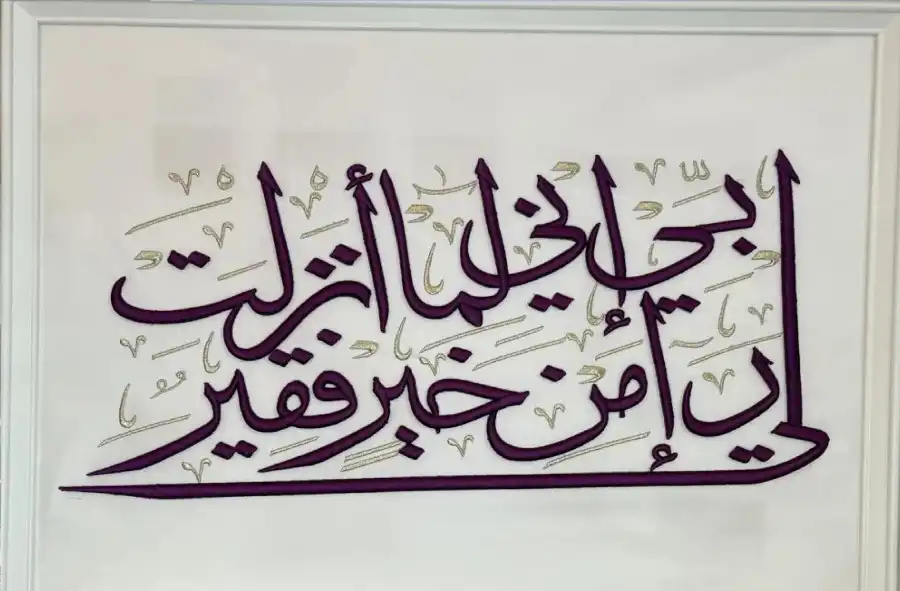 ربي إني لما أنزلت
إلي من خير فقير